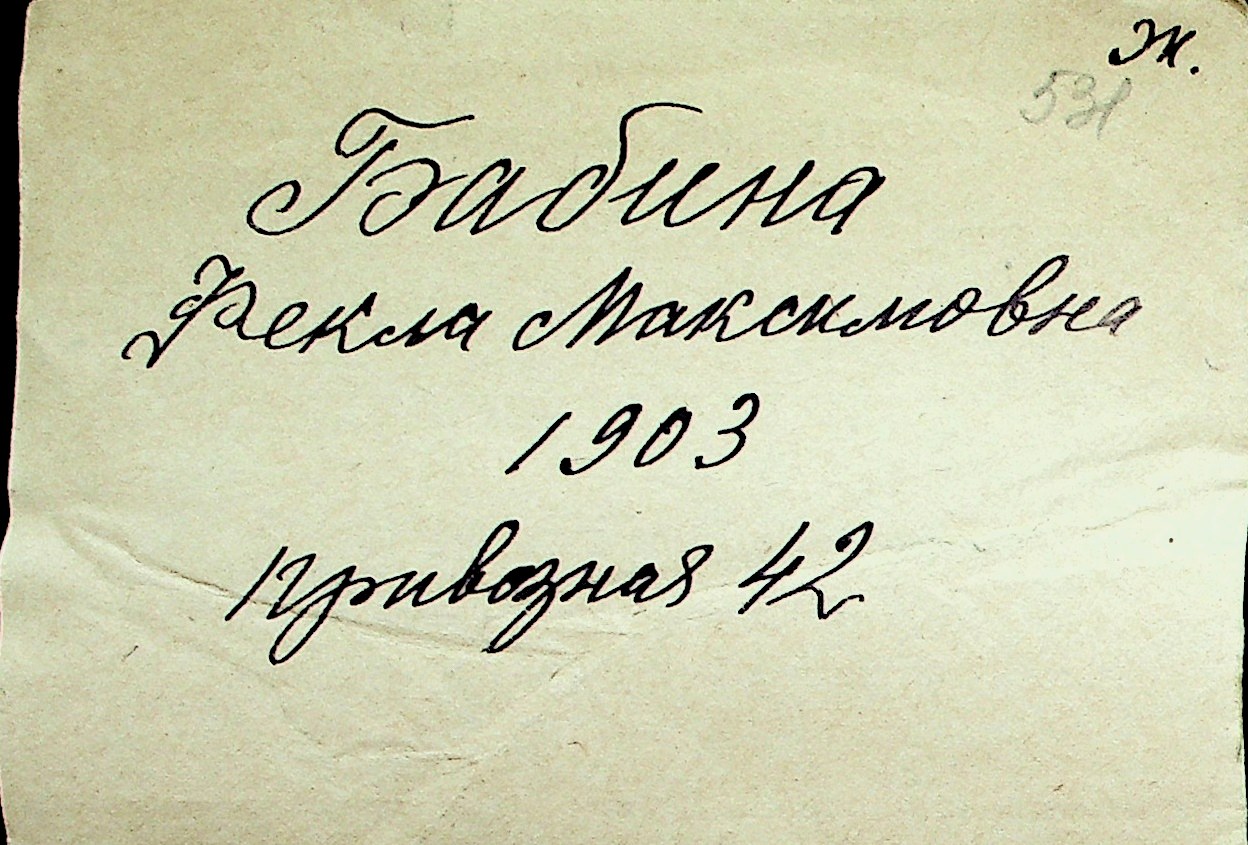 Ж.
531
Бабина
Фекла Максимовна
1903
Привозная 42